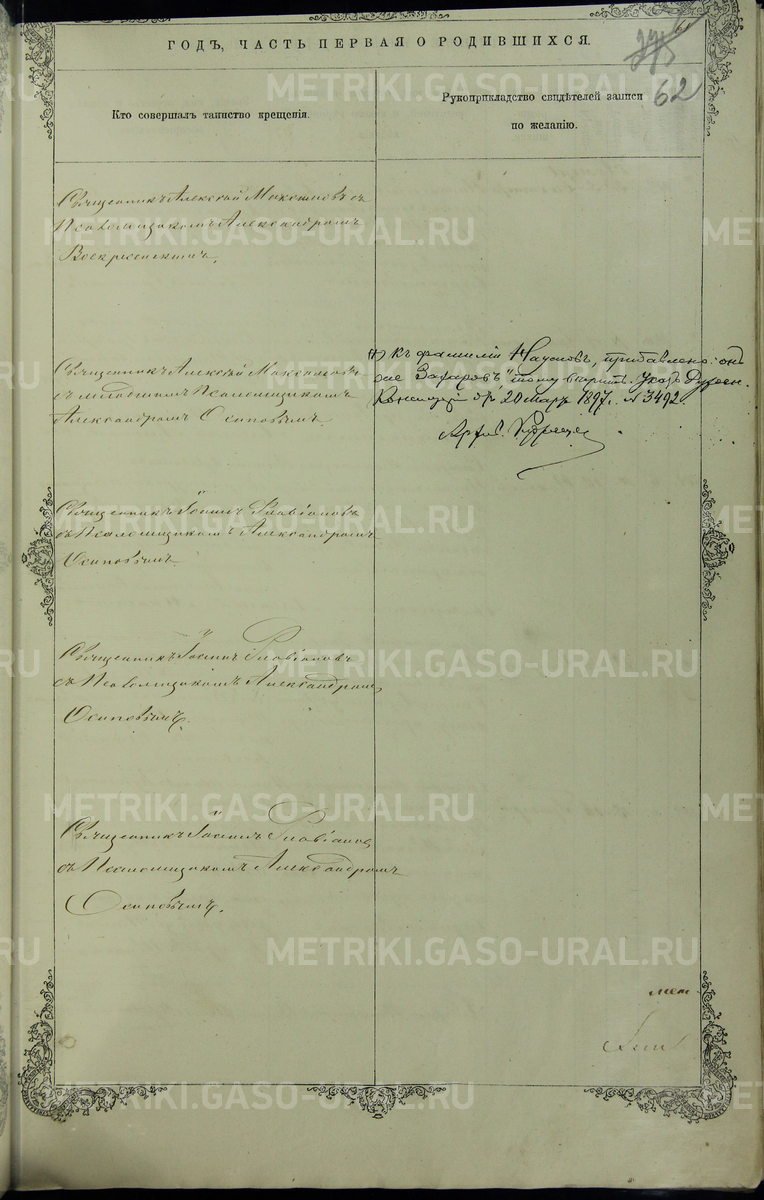 ГОДЪ, ЧАСТЬ ПЕРВАЯ О РОДИВШИХСЯ.
62
Кто совершалъ таинство крещенія.
Рукоприкладство свидѣтелей записи
по желанію.
Священникъ Алексѣй Максимовъ съ
Псаломщикомъ Александромъ
Воскресенскимъ.
Священникъ Алексѣй Максимовъ
съ Псаломщикомъ
Александромъ Осиповымъ
Къ фамиліи Наумовъ, прибавлено: онъ
же Захаровъ"
Консисторіи отъ 20 Марта 1897 г. № 3492.
Священникъ Іоаннъ Флавіановъ
съ Псаломщикомъ Александромъ
Осиповымъ
Священникъ Іоаннъ Флавіановъ
съ Псаломщикомъ Александромъ
Осиповымъ.
Священникъ Іоаннъ Флавіановъ
съ Псаломщикомъ Александромъ
Осиповымъ.
METRIKI.GASO-URAL.RU